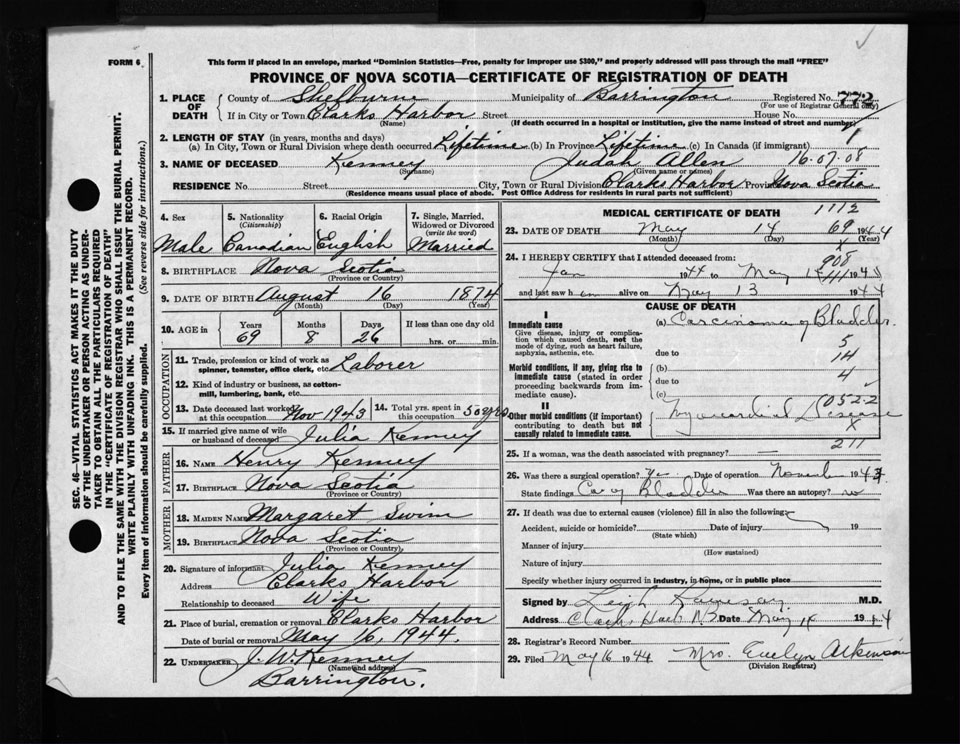 FORM 6
This form if placed in an envelope, marked "Dominion Statistics—Free, penalty for improper use $300," and properly addressed will pass through the mail "FREE"
PROVINCE OF NOVA SCOTIA—CERTIFICATE OF REGISTRATION OF DEATH
1. PLACE OF DEATH
County of Shelburne Municipality of Barrington Registered No. 772
(For use of Registrar General only)
If in City or Town Clarks Harbor Street House No.
(Name) (If death occurred in a hospital or institution, give the name instead of street and number)
2. LENGTH OF STAY (in years, months and days)
(a) In City, Town or Rural Division where death occurred Lifetime (b) In Province Lifetime (c) In Canada (if immigrant)
3. NAME OF DECEASED Kenney Judah Allen 16.07.08
(Surname) (Given name or names)
RESIDENCE No. Street City, Town or Rural Division Clarks Harbor Province Nova Scotia
(Residence means usual place of abode. Post Office Address for residents in rural parts not sufficient)
4. Sex
Male
5. Nationality
(Citizenship)
Canadian
6. Racial Origin
English
7. Single, Married, Widowed or Divorced
(write the word)
Married
8. BIRTHPLACE Nova Scotia
(Province or Country)
9. DATE OF BIRTH August 16 1874
(Month) (Day) (Year)
10. AGE in
Years Months Days If less than one day old
69 8 26 hrs. or min.
OCCUPATION
11. Trade, profession or kind of work as
spinner, teamster, office clerk, etc. Laborer
12. Kind of industry or business, as cotton-
mill, lumbering, bank, etc.
13. Date deceased last worked
at this occupation Nov 1943
14. Total yrs. spent in
this occupation 50 yrs
15. If married give name of wife
or husband of deceased Julia Kenney
FATHER
16. NAME Henry Kenney
17. BIRTHPLACE Nova Scotia
(Province or Country)
MOTHER
18. MAIDEN NAME Margaret Swim
19. BIRTHPLACE Nova Scotia
(Province or Country)
20. Signature of informant Julia Kenney
Address Clarks Harbor
Relationship to deceased Wife
21. Place of burial, cremation or removal Clarks Harbor
Date of burial or removal May 16, 1944
22. UNDERTAKER J. W. Kenney
(Name and address)
Barrington.
MEDICAL CERTIFICATE OF DEATH 1112
23. DATE OF DEATH May 14 69 1944
(Month) (Day) X (Year)
24. I HEREBY CERTIFY that I attended deceased from: 908
Jan 1944 to May 1944
and last saw him alive on May 13 1944
CAUSE OF DEATH
I
Immediate cause
Give disease, injury or complication which caused death, not the mode of dying, such as heart failure, asphyxia, asthenia, etc.
(a) Carcinoma of Bladder.
5
due to 14
Morbid conditions, if any, giving rise to immediate cause (stated in order proceeding backwards from immediate cause).
(b) 4
due to
(c) 052.2
II
Other morbid conditions (if important) contributing to death but not causally related to immediate cause.
Myocardial Disease
X
211
25. If a woman, was the death associated with pregnancy? —
26. Was there a surgical operation? Yes Date of operation 1943
State findings Ca of Bladder Was there an autopsy? no
27. If death was due to external causes (violence) fill in also the following:
Accident, suicide or homicide? Date of injury 19
(State which)
Manner of injury
(How sustained)
Nature of injury
Specify whether injury occurred in industry, in home, or in public place
Signed by Leigh M.D.
Address Date May 1944
28. Registrar's Record Number
29. Filed May 16 1944 Mrs. Evelyn Atkinson
(Division Registrar)
SEC. 46—VITAL STATISTICS ACT MAKES IT THE DUTY
OF THE UNDERTAKER OR PERSON ACTING AS UNDER-
TAKER TO OBTAIN ALL THE PARTICULARS REQUIRED
IN THE "CERTIFICATE OF REGISTRATION OF DEATH"
AND TO FILE THE SAME WITH THE DIVISION REGISTRAR WHO SHALL ISSUE THE BURIAL PERMIT.
WRITE PLAINLY WITH UNFADING INK. THIS IS A PERMANENT RECORD.
Every item of information should be carefully supplied. (See reverse side for instructions.)